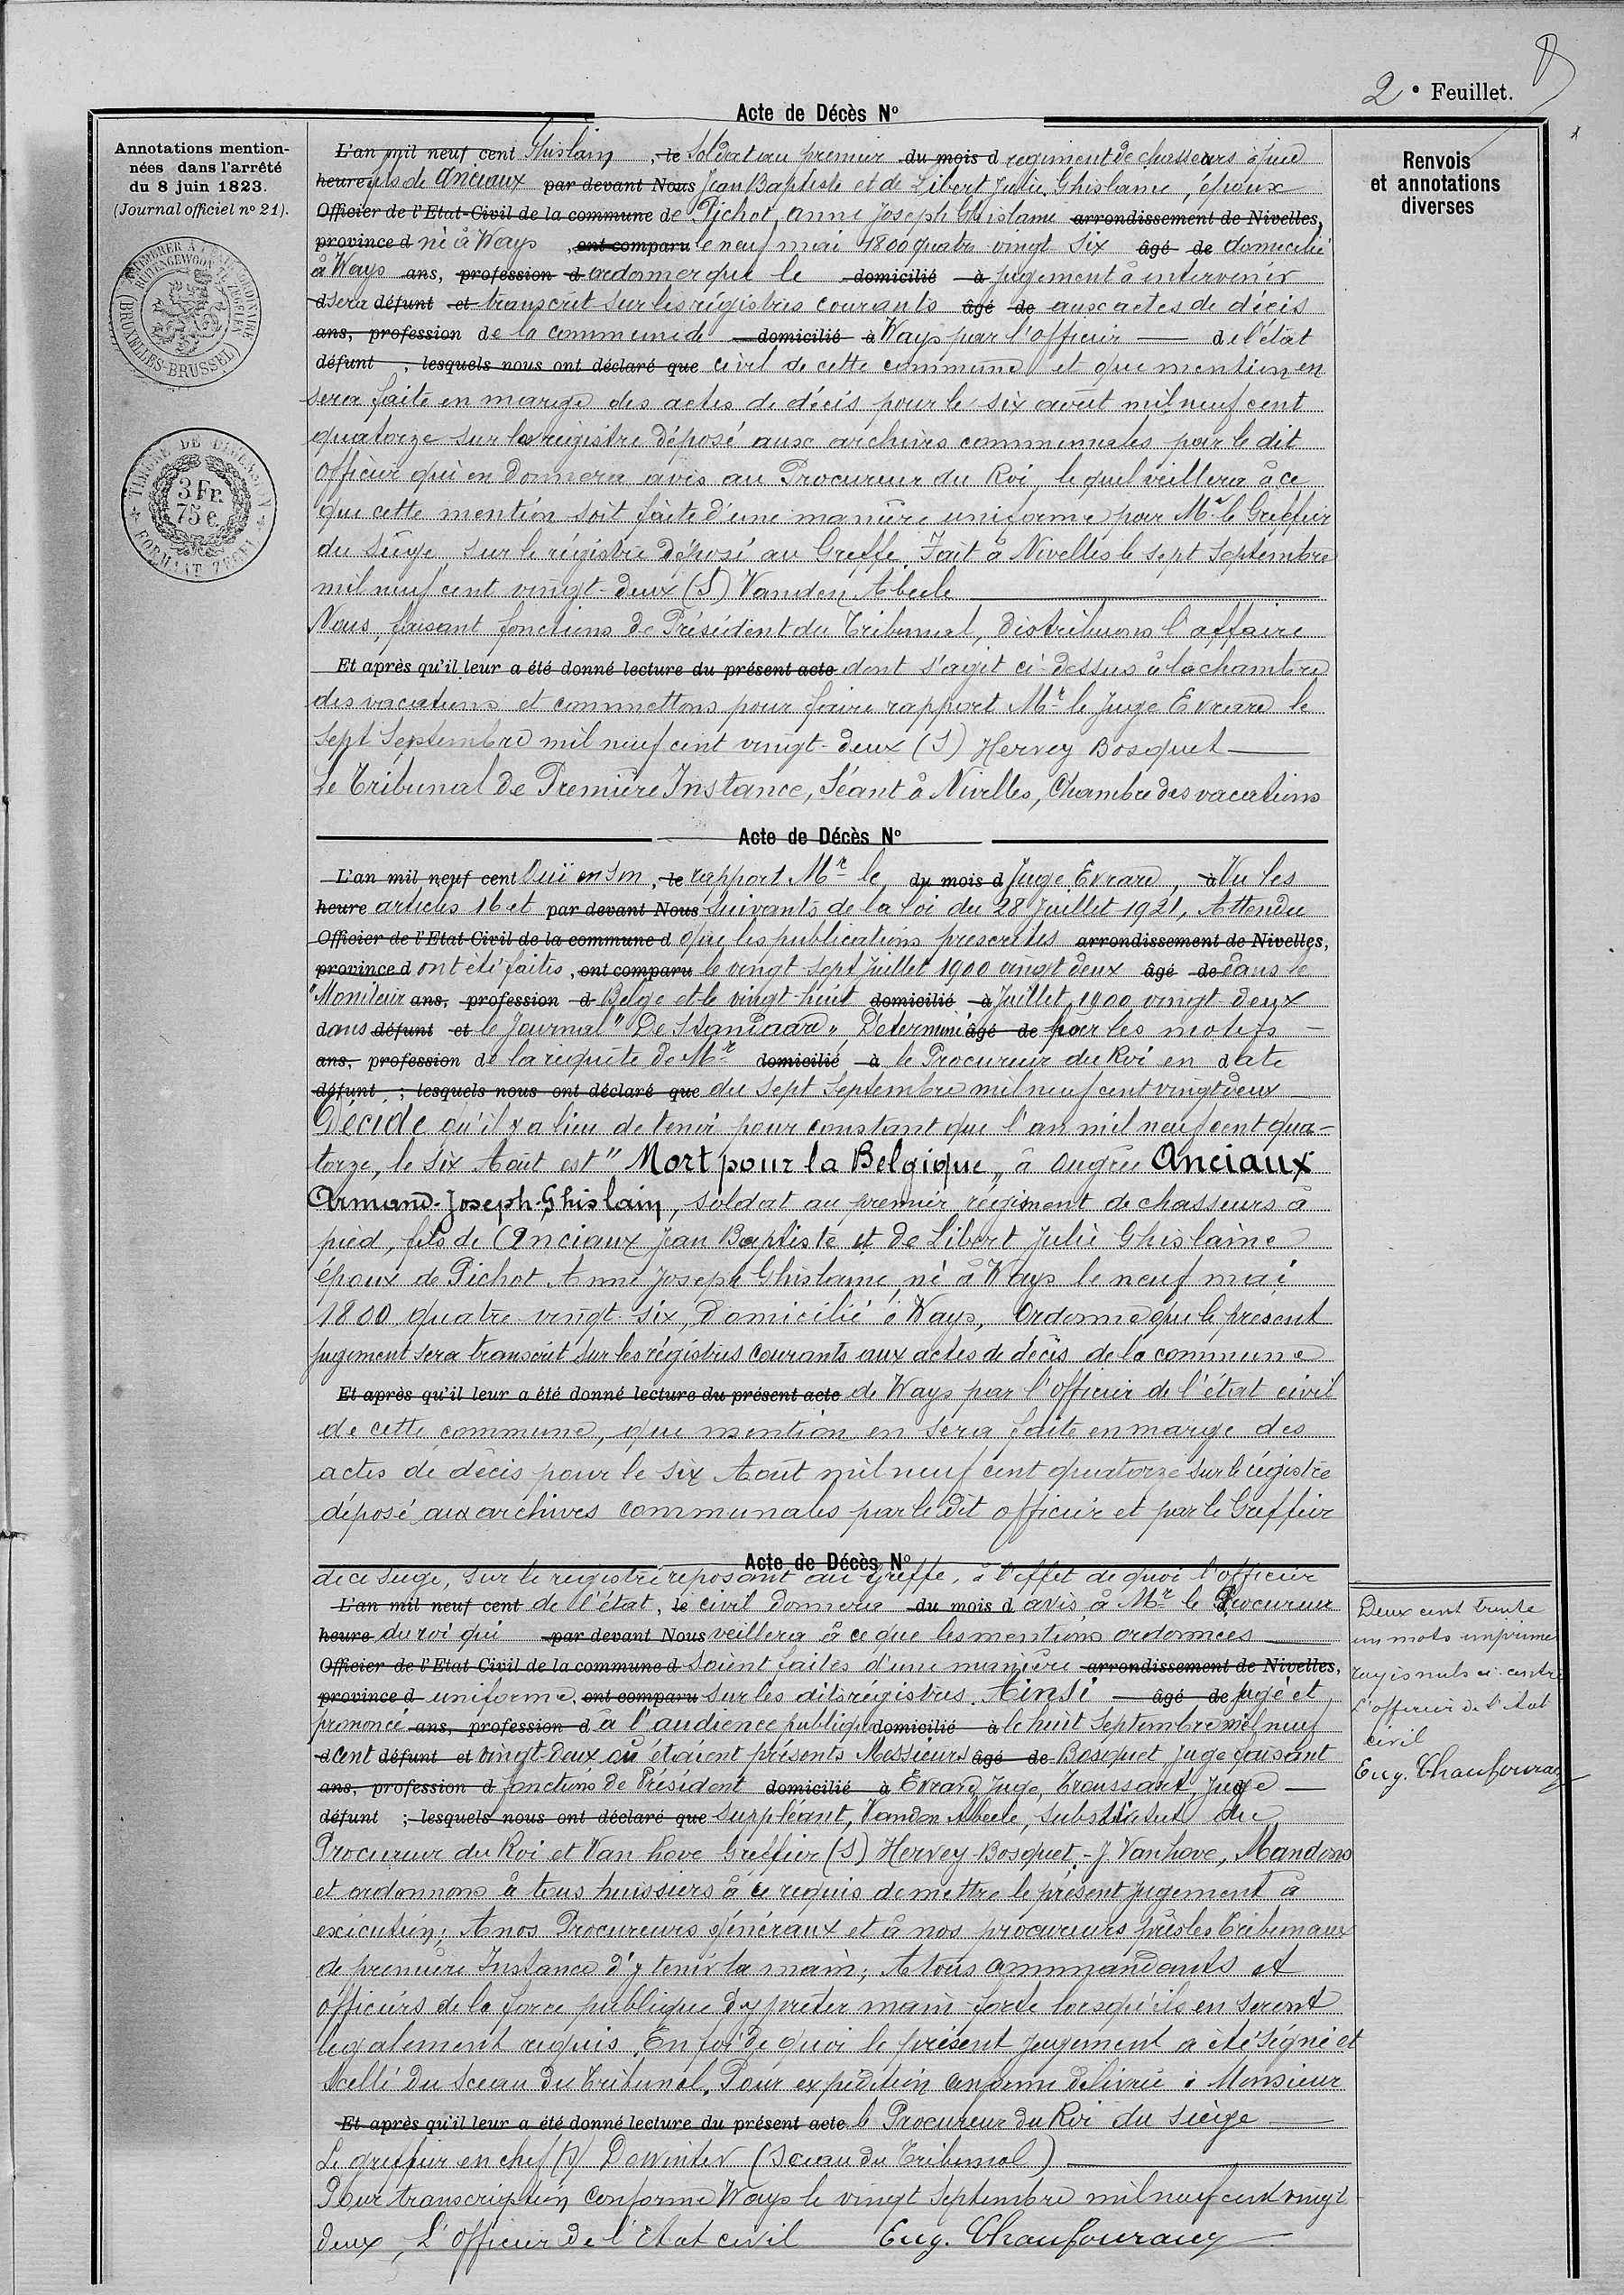 2e Feuillet.
Acte de Décès No
Annotations mention-
nées dans l'arrêté
du 8 juin 1823.
(Journal officiel no 21).
Renvois
et annotations
diverses
TIMBRE DE DIMENSION
3 Fr.
75 c.
FORMAAT ZEGEL
L'an mil neuf cent Ghislain, le soldat au premier du mois d régiment de chasseurs à pied
heure fils de Anciaux par devant Nous Jean Baptiste et de Libert Julie Ghislaine, époux
Officier de l'Etat-Civil de la commune de Pichot Anne Joseph Ghislaine arrondissement de Nivelles,
province d né à Ways, ont comparu le neuf mai 1800 quatre vingt six âgé de domicilié
à Ways ans, profession d ordonner que le domicilié à jugement à intervenir
d sera défunt et transcrit sur les régistres courants âgé de aux actes de décès
ans, profession de la commune de domicilié à Ways par l'officier de l'état
défunt ; lesquels nous ont déclaré que civil de cette commune et que mention en
sera faite en marge des actes de décès pour le six août mil neuf cent
quatorze sur le régistre déposé aux archives communales par le dit
officier qui en donnera avis au Procureur du Roi, lequel veillera à ce
que cette mention soit faite d'une manière uniforme par Mr le Greffier
du siège sur le régistre déposé au Greffe. Fait à Nivelles le sept Septembre
mil neuf cent vingt-deux (S) Vanden Abeele
Nous, faisant fonctions de Président du Tribunal, distribuons l'affaire
Et après qu'il leur a été donné lecture du présent acte dont s'agit ci-dessus à la chambre
des vacations et commettons pour faire rapport Mr le Juge Evrard le
sept Septembre mil neuf cent vingt-deux (S) Hervey Bosquet
Le Tribunal de Première Instance, Séant à Nivelles, Chambre des vacations
Acte de Décès No
L'an mil neuf cent Ouï en son, le rapport Mr le, du mois d Juge Evrard, à Vu les
heure articles 16 et par devant Nous suivants de la loi du 28 Juillet 1921, Attendu
Officier de l'Etat-Civil de la commune d que les publications prescrites arrondissement de Nivelles,
province d ont été faites, ont comparu le vingt sept juillet 1900 vingt deux âgé de dans le
"Moniteur ans, profession d Belge et le vingt-huit domicilié à Juillet 1900 vingt-deux
dans défunt et le Journal "De Standaard" Déterminé âgé de par les motifs
ans, profession de la requête de Mr domicilié à le Procureur du Roi en date
défunt ; lesquels nous ont déclaré que du sept Septembre mil neuf cent vingt deux
Décide qu'il y a lieu de tenir pour constant que l'an mil neuf cent qua-
torze, le six Août est "Mort pour la Belgique" à Augrée Anciaux
Armand-Joseph-Ghislain, soldat au premier régiment de chasseurs à
pied, fils de Anciaux Jean Baptiste et de Libert Julie Ghislaine
époux de Pichot Anne Joseph Ghislaine, né à Ways le neuf mai
1800 quatre-vingt-six, domicilié à Ways, Ordonne que le présent
jugement sera transcrit sur les régistres courants aux actes de décès de la commune
Et après qu'il leur a été donné lecture du présent acte de Ways par l'officier de l'état civil
de cette commune, que mention en sera faite en marge des
actes de décès pour le six Août mil neuf cent quatorze sur le régistre
déposé aux archives communales par le dit officier et par le Greffier
Acte de Décès No
de ce siège, sur le régistre reposant au Greffe, à l'effet de quoi l'officier
L'an mil neuf cent de l'état, le civil donnera du mois d avis à Mr le Procureur
heure du roi qui par devant Nous veillera à ce que les mentions ordonnées
Officier de l'Etat-Civil de la commune d soient faites d'une manière arrondissement de Nivelles,
province d uniforme, ont comparu sur les dits régistres. Ainsi âgé de jugé et
prononcé ans, profession d à l'audience publique domicilié à le huit Septembre mil neuf
d cent défunt et vingt-deux où étaient présents Messieurs âgé de Bosquet Juge faisant
ans, profession d fonctions de Président domicilié à Evrard Juge, Troussart Juge
défunt ; lesquels nous ont déclaré que suppléant, Vanden Abeele, substitut du
Procureur du Roi et Van hove Greffier (S) Hervey-Bosquet - J. Vanhove, Mandons
et ordonnons à tous huissiers à ce requis de mettre le présent jugement à
exécution; A nos Procureurs généraux et à nos procureurs près les Tribunaux
de première Instance d'y tenir la main; A tous commandants et
officiers de la force publique d'y prêter main-forte lorsqu'ils en seront
légalement requis. En foi de quoi le présent jugement a été signé et
scellé du sceau du Tribunal. Pour expédition conforme délivrée à Monsieur
Et après qu'il leur a été donné lecture du présent acte le Procureur du Roi du siège
Le greffier en chef (S) Dewinter (Sceau du Tribunal)
Pour transcription conforme Ways le vingt Septembre mil neuf cent vingt
deux, L'officier de l'Etat civil Eug. Chaufouraux
Deux cent trente
un mots imprimés
rayés nuls ci-contre
L'officier de l'état
civil
Eug. Chaufouraux